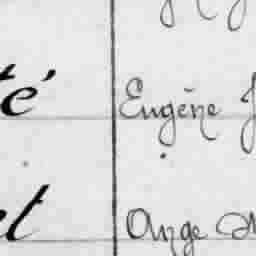 té Eugène J
et Ange M